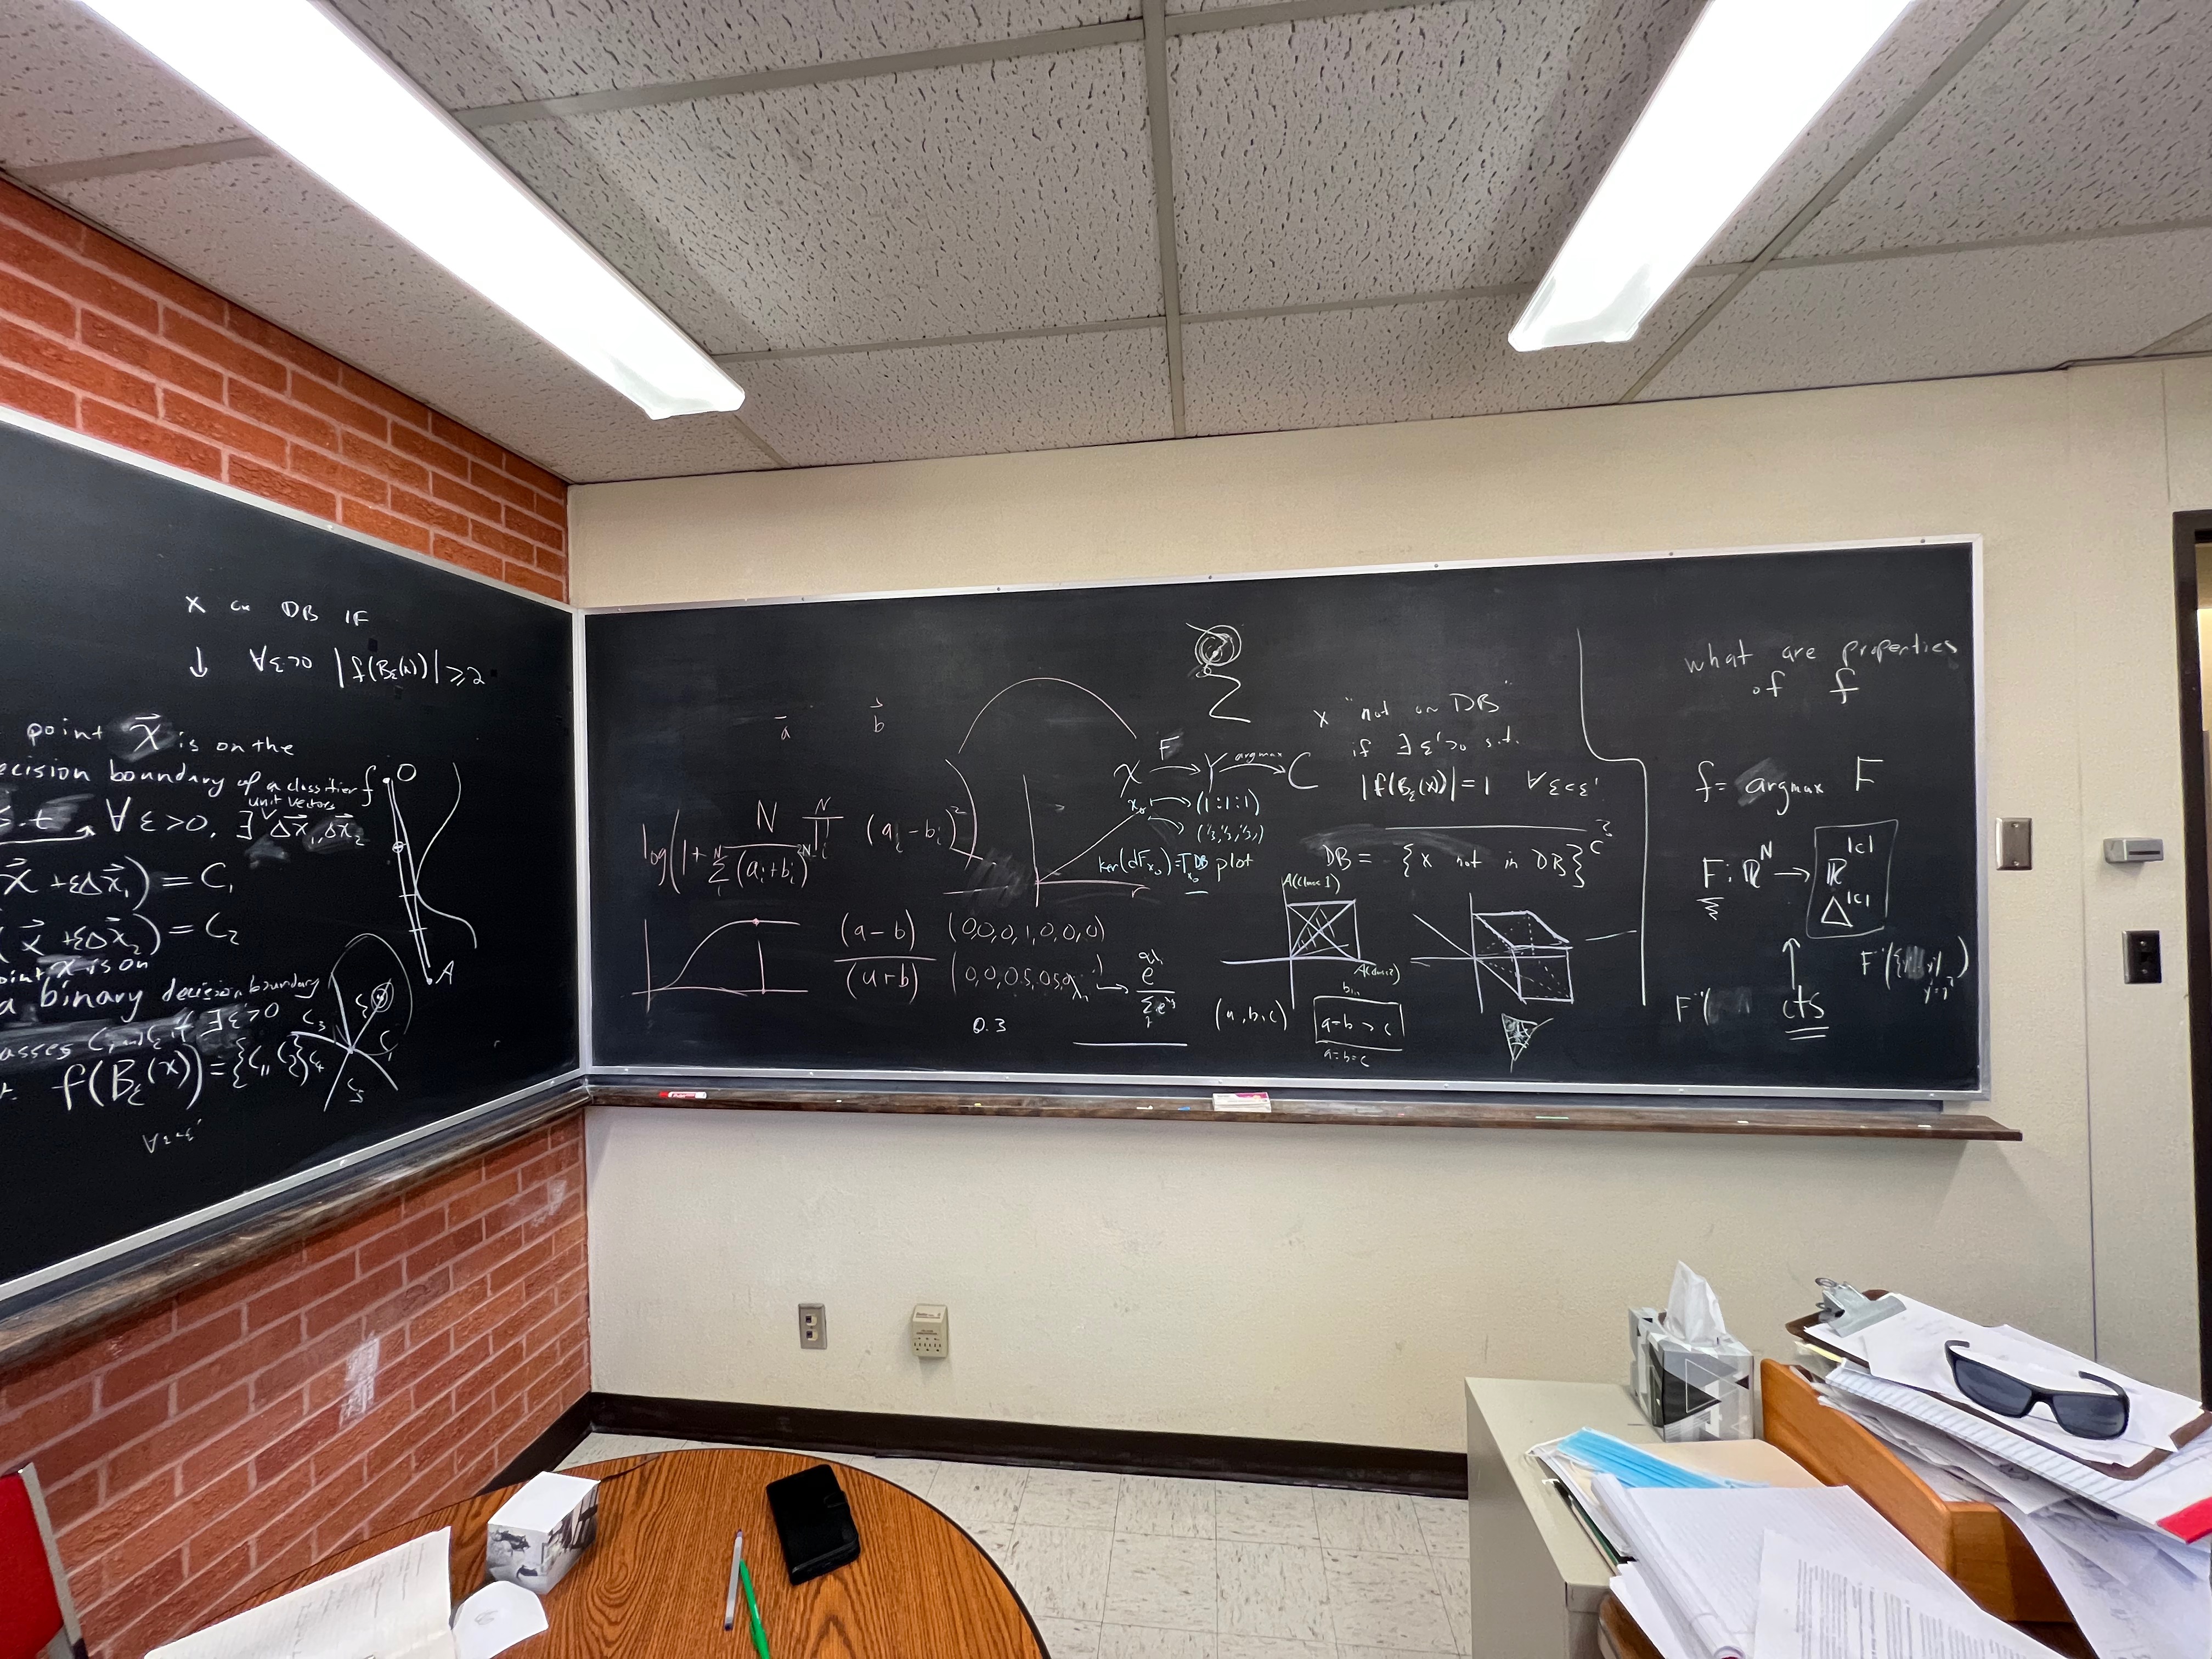 x on DB IF
↓ ∀ε>0 |f(B_ε(x))| ≥ 2
point x⃗ is on the
ecision boundary of a classifier f
unit vectors
s.t ∀ε>0, ∃ Δx⃗₁, Δx⃗₂
x⃗ + εΔx⃗₁) = C₁
x⃗ + εΔx⃗₂) = C₂
point x is on
a binary decision boundary
asses C₁ C₂ if ∃ε>0
f(B_ε(x)) = {C₁, C₂}
O
A
C₃
C₄
C₅
a⃗
b⃗
log(1+ N / Σ(aᵢ+bᵢ) (aᵢ-bᵢ)²
(a-b)
(a+b)
(0,0,0,1,0,0,0)
(0,0,0.5,0.5,0,
0.3
F argmax
X → Y → C
x₀ → (1:1:1)
(⅓,⅓,⅓)
ker(dF_x₀) = T_x₀ DB plot
x "not on DB"
if ∃ε'>0 s.t.
|f(B_ε(x))| = 1 ∀ε<ε'
DB = {x not in DB}ᶜ
A(class 1)
A(class 2)
(a, b, c)
bin
a=b > c
a=b=c
what are properties
of f
f = argmax F
F: ℝᴺ → ℝ^|c|
Δ^|c|
↑
cts
F⁻¹(